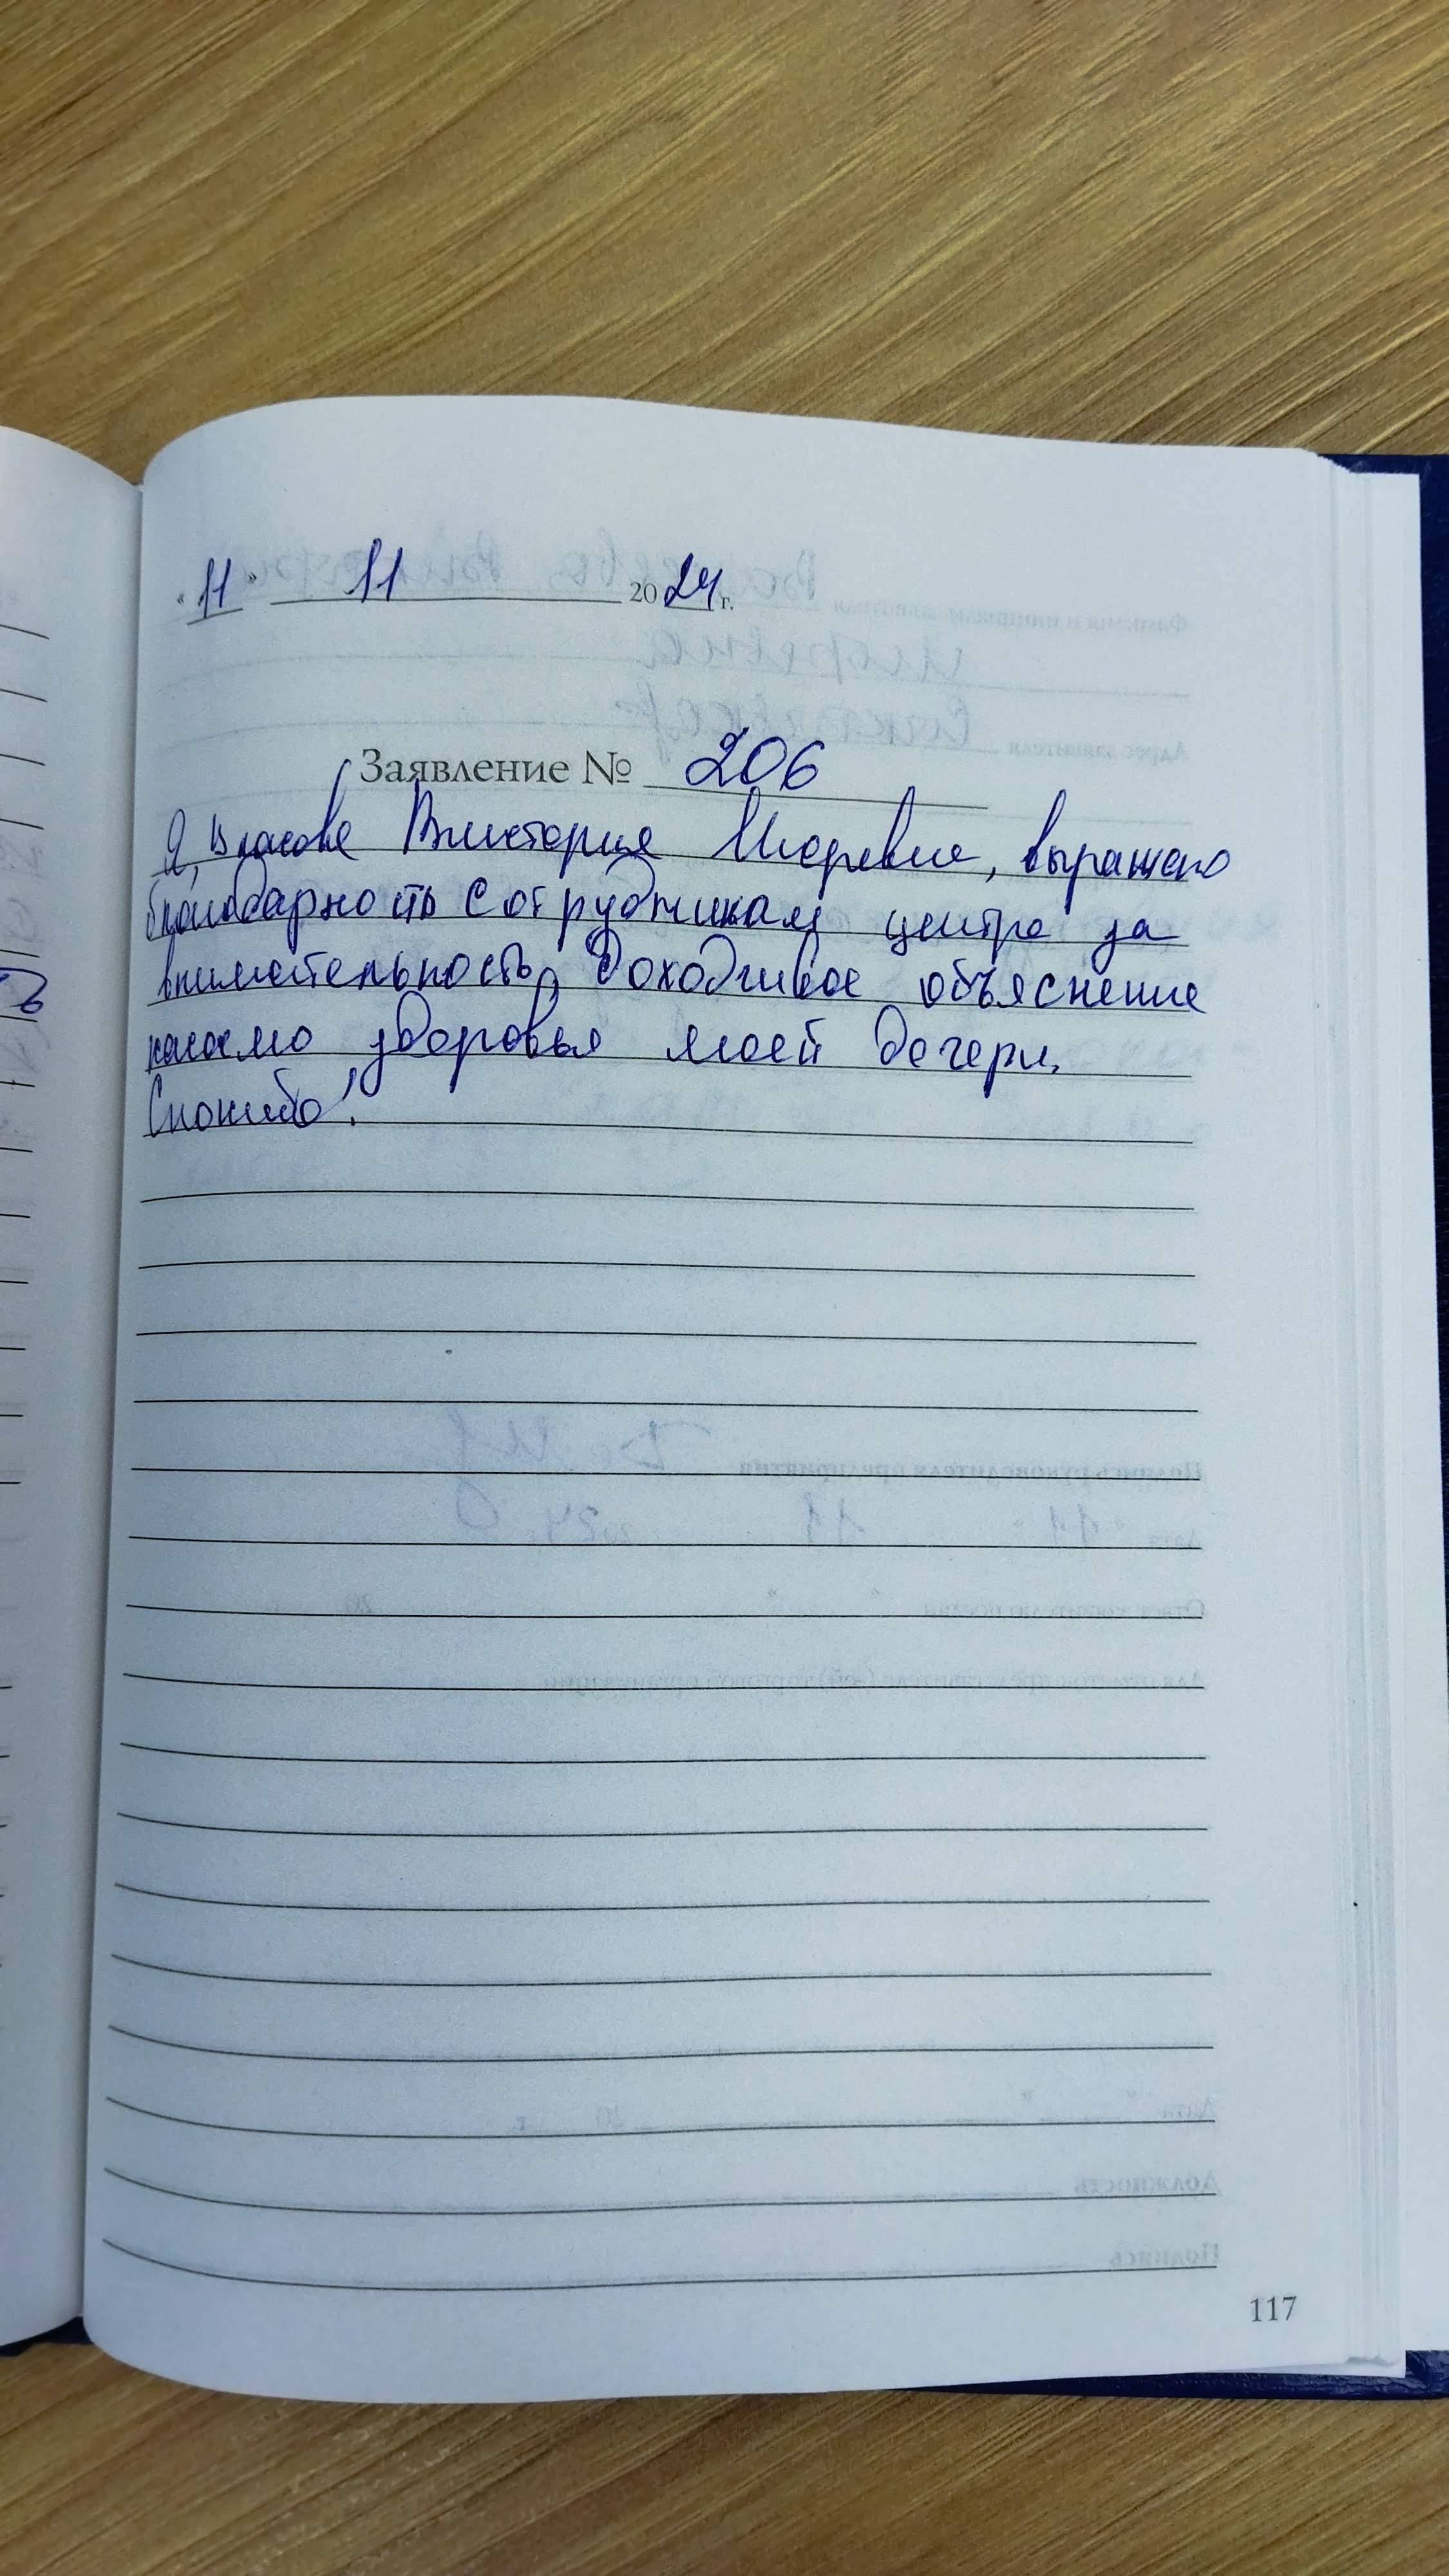 "11" 11 2024 г.
Заявление № 206
Я, Власова Виктория Игоревна, выражаю
благодарность сотрудникам центра за
внимательность, доходчивое объяснение
касаемо здоровья моей дочери.
Спасибо!
117